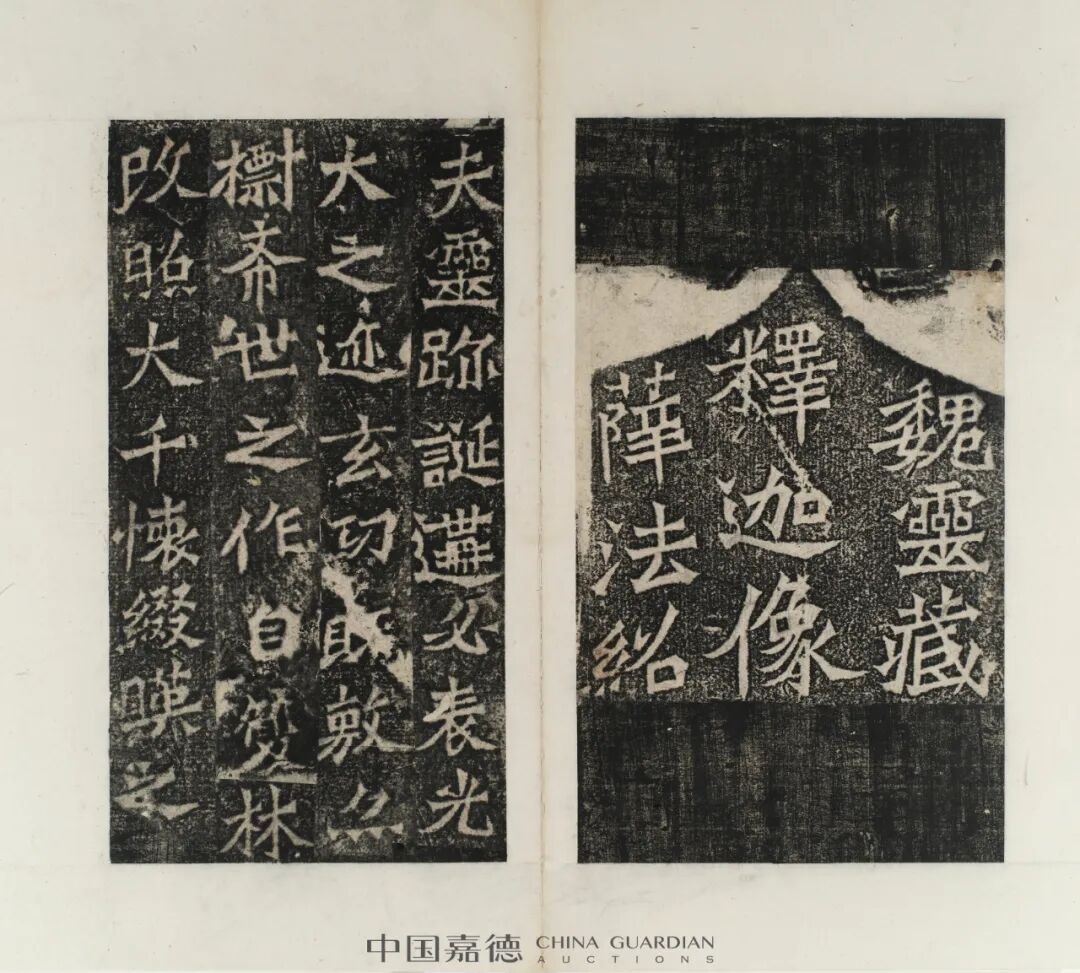 魏靈藏
釋迦像
薛法紹
夫靈跡誕遘必表光
大之迹玄功既敷亦
標希世之作自雙林
改照大千懷綴暎之
中国嘉德 CHINA GUARDIAN
AUCTIONS